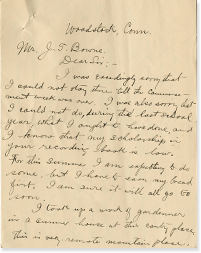 Woodstock, Conn.
Mr. J. T. Bowne.
Dear Sir:-
I was exceedingly sorry that
I could not stay there till the commence-
ment week was over. I was also sorry that
I could not do, during the last school
year, what I ought to have done, and
I know that my scholarship in
your recording book is low.
For this summer I am expecting to do
some, but I have to earn my bread
first, I am sure it will all go to
soon.
I took up a work of gardener
in a summer house at this city place,
This is very remote mountain place.